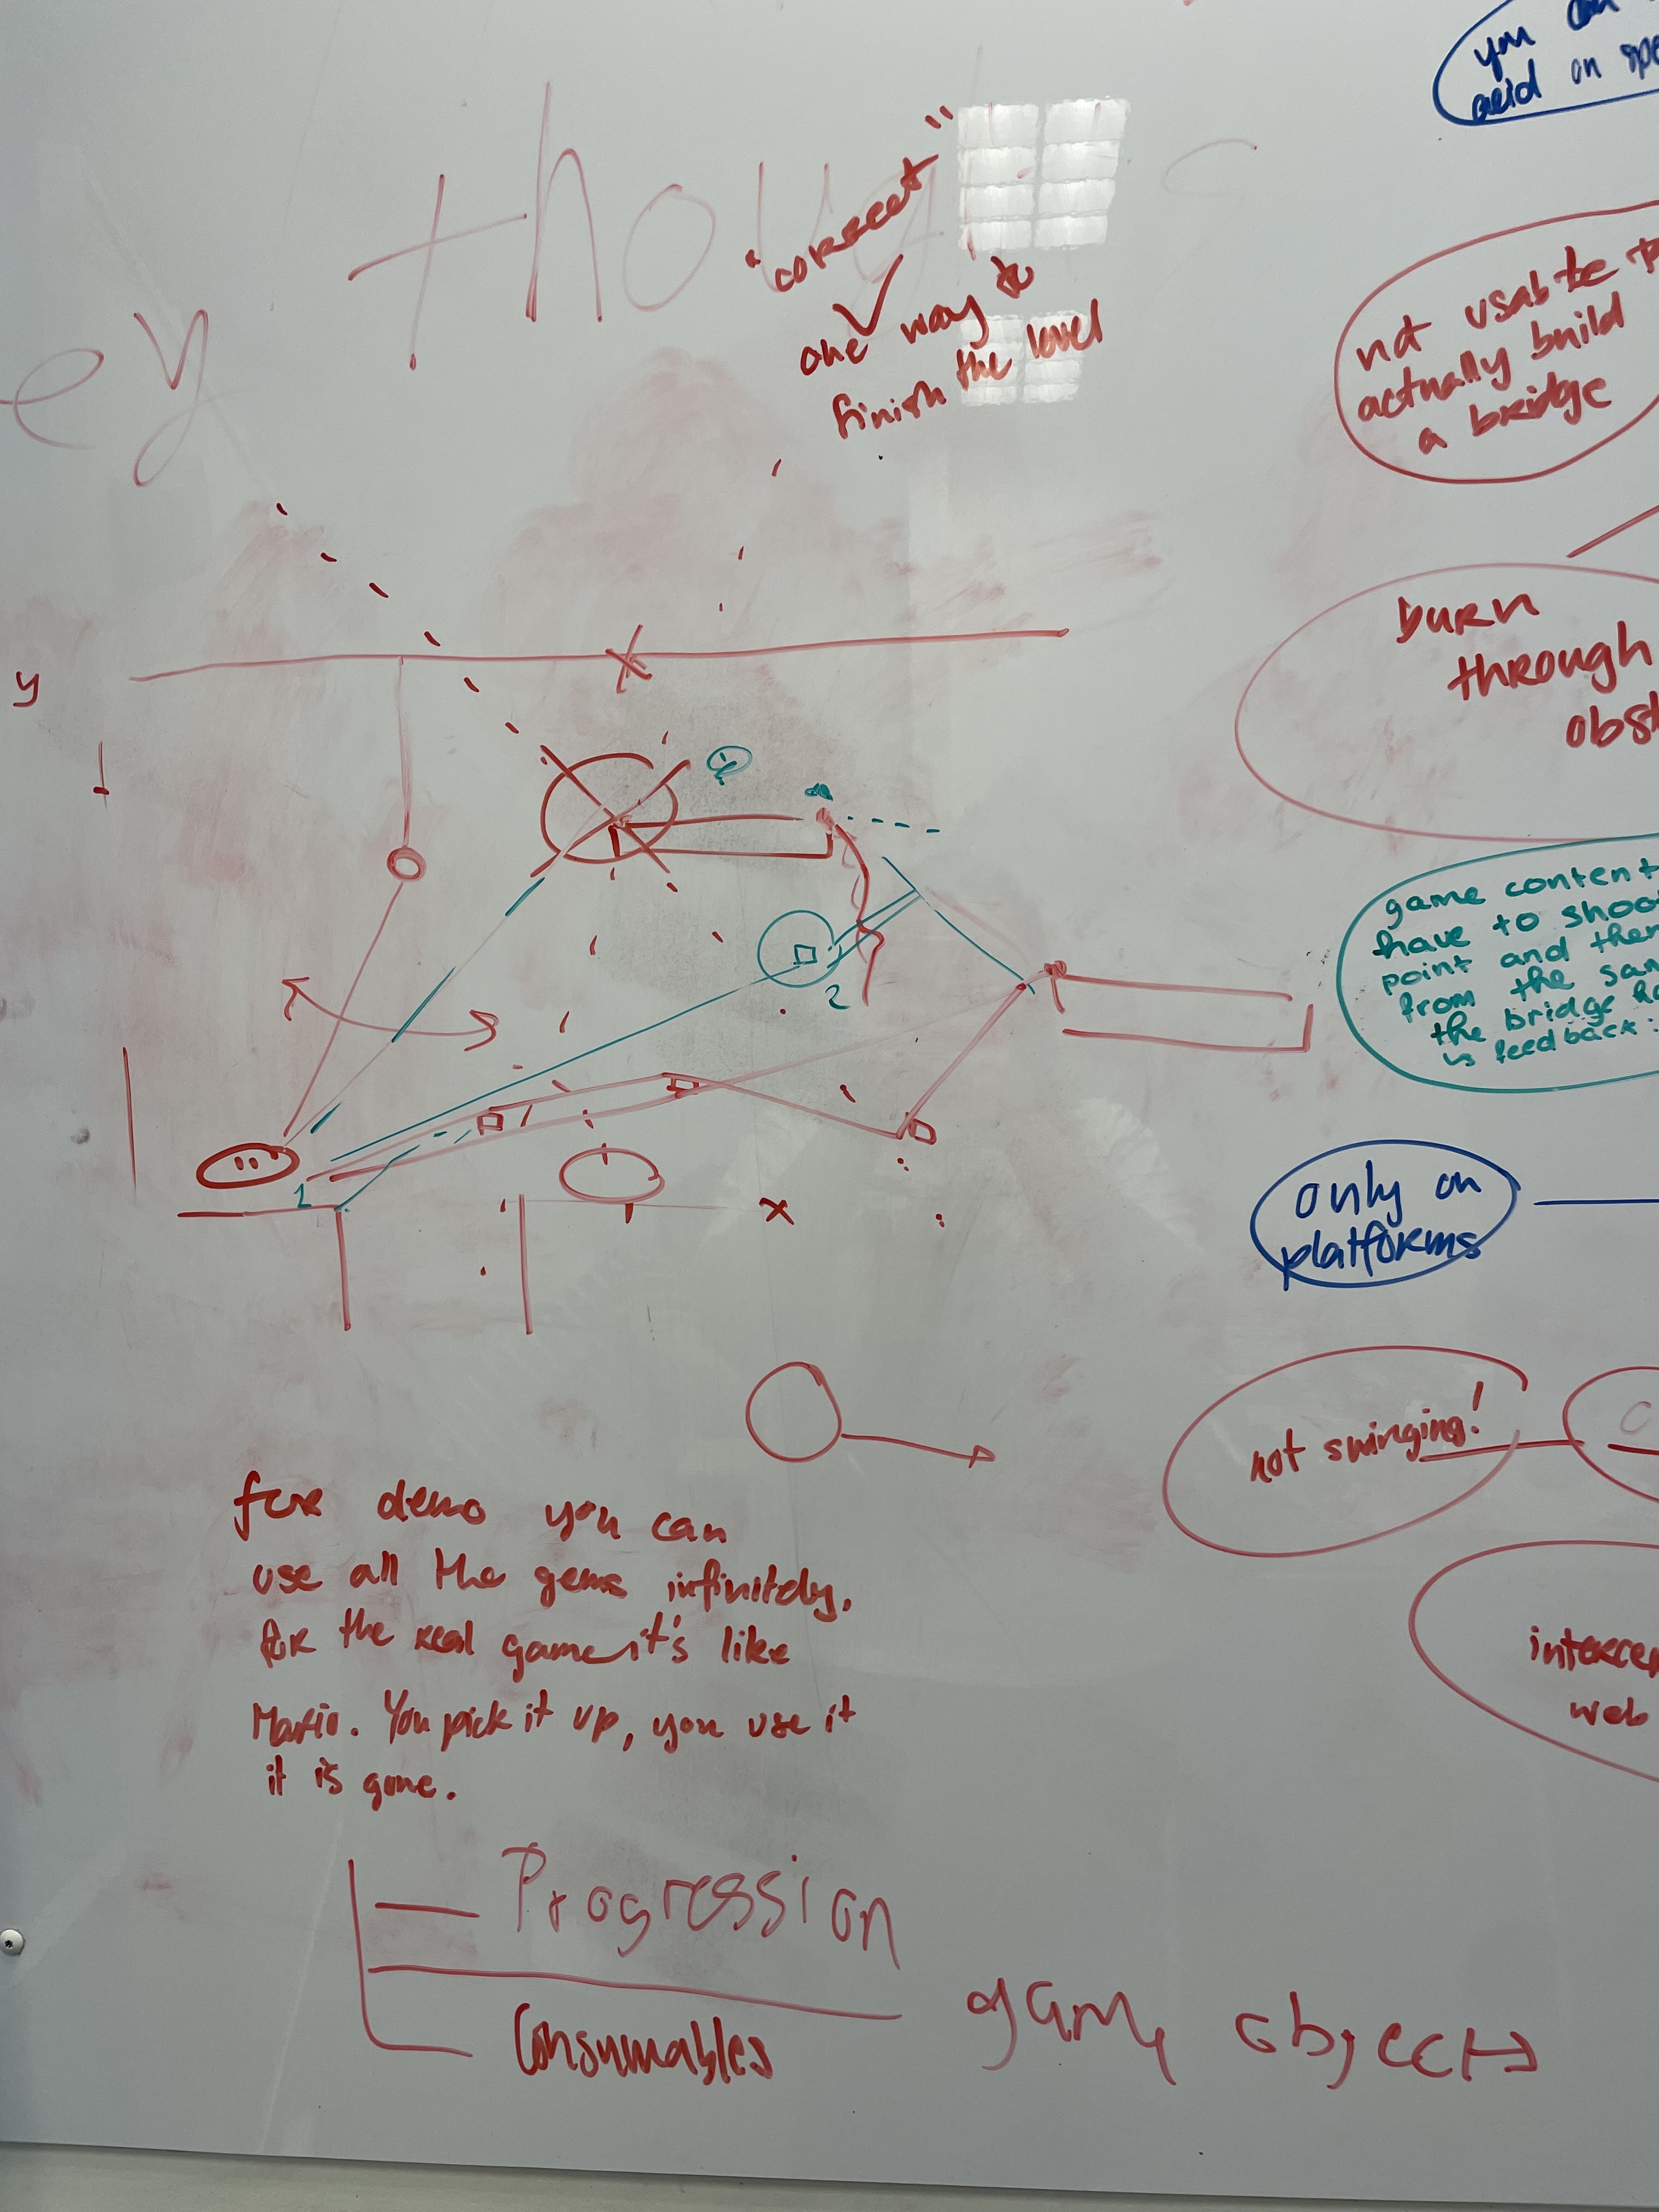 you can
acid on
"correct"
one way to
finish the level
not usable
actually build
a bridge
burn
through
y
2
game content
have to shoot
point and then
from the
the bridge
is feedback:
1
x
only on
platforms
not swinging!
for demo you can
use all the gems infinitely.
for the real game it's like
Mario. You pick it up, you use it
it is gone.
web
Progression
Consumables
game objects